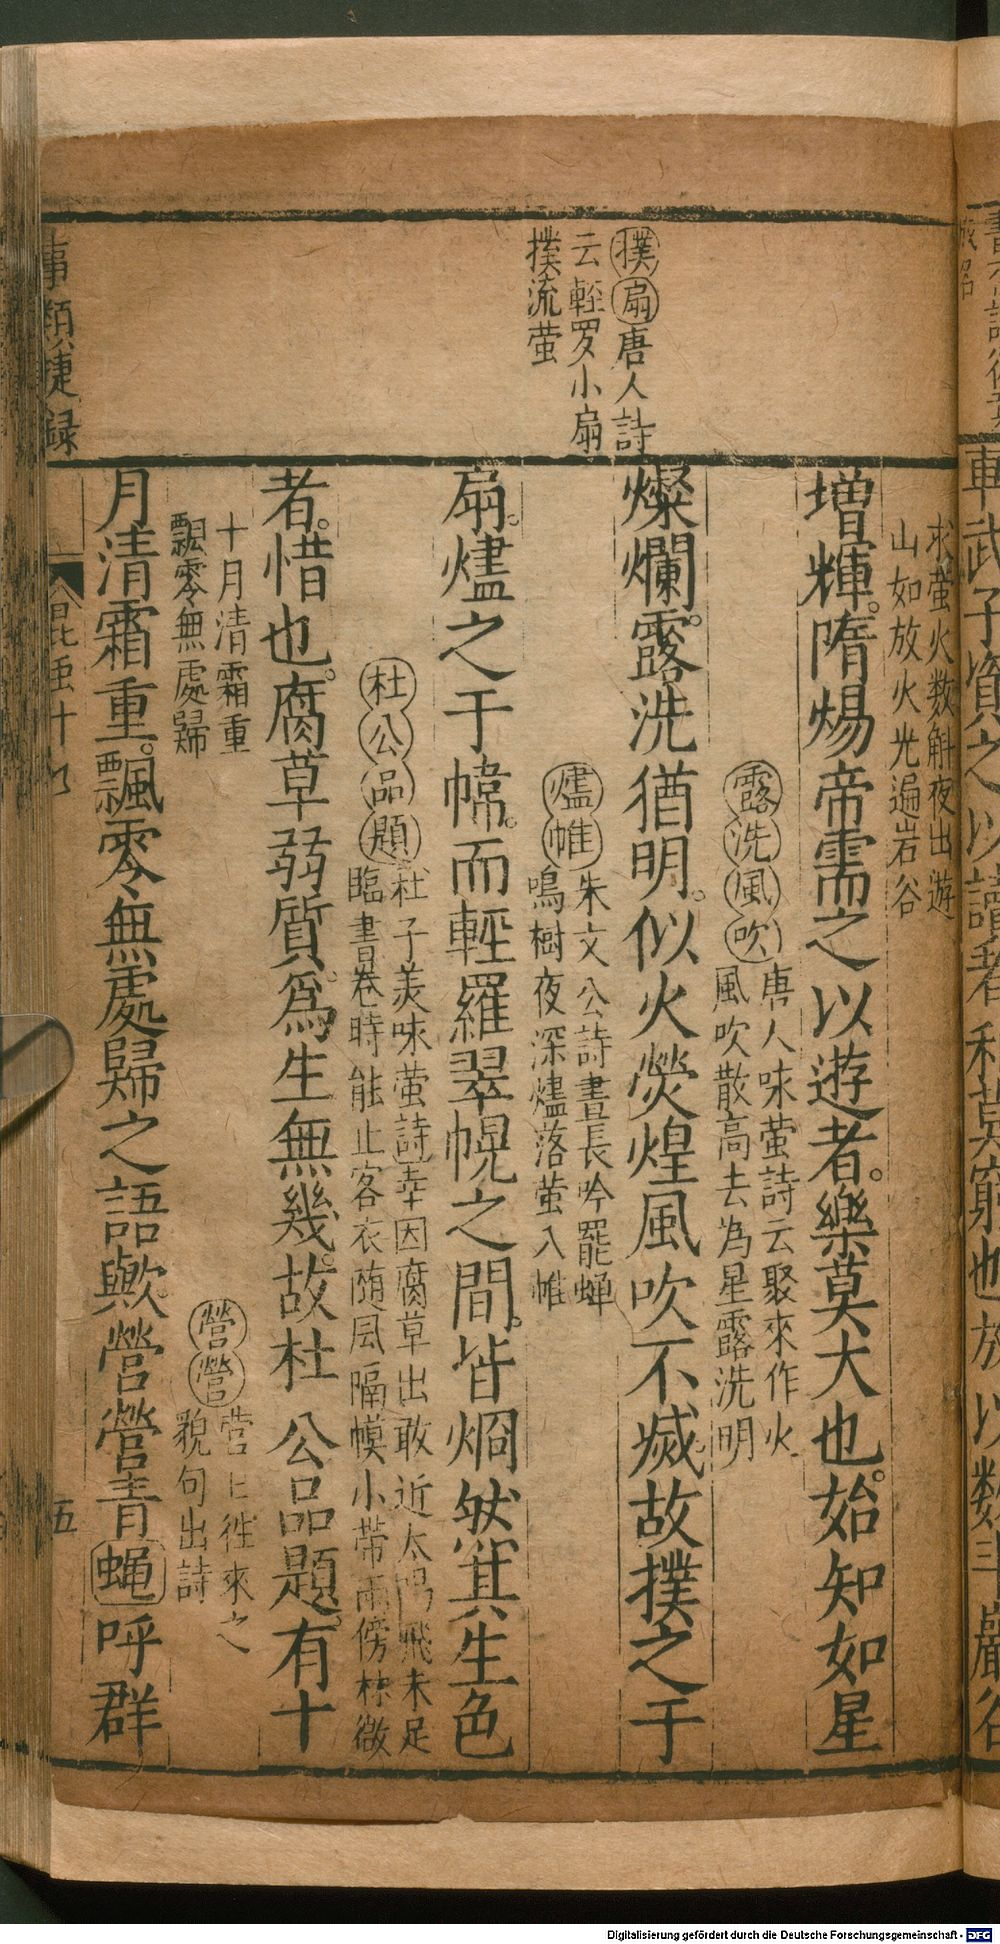 撲扇唐人詩
云輊罗小扇
撲流萤
求萤火数斛夜出遊
山如放火光遍岩谷
增輝。隋煬帝需之以遊者。樂莫大也。始知如星
露洗風吹唐人味萤詩云聚來作火
風吹散高去为星露洗明
燦爛。露洗猶明。似火熒煌風吹不滅。故撲之于
爐帷朱文公詩晝長吟罷蝉
鳴樹夜深爐落萤入帷
扇。爐之于幃。而輊羅翠幌之間。皆烱然其生色
杜公品題杜子美味萤詩幸因腐草出敢近太陽飛未足
臨書卷時能止客衣随风隔幙小帶雨傍林微
者。惜也。腐草弱質。爲生無幾。故杜公品題。有十
十月清霜重
飄零無處歸
月清霜重。飄零無處歸之語歟。營營青蝇呼群
營營营〻徃來之
貌句出詩
事類捷録
昆虫十九
五
車武子資之以讀者利莫窮也放以数斗巖谷
Digitalisierung gefördert durch die Deutsche Forschungsgemeinschaft - DFG